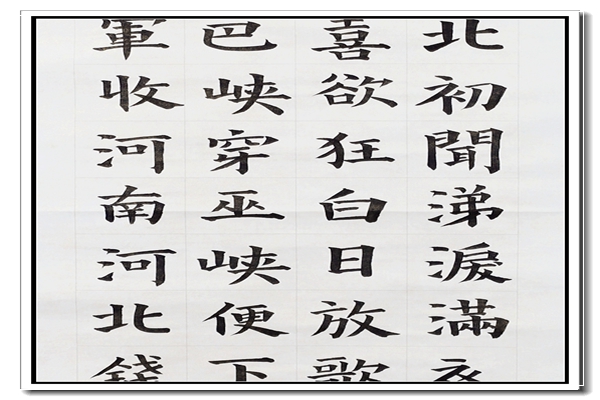 北初聞涕淚滿衣
喜欲狂白日放歌
巴峽穿巫峽便下
軍收河南河北錢